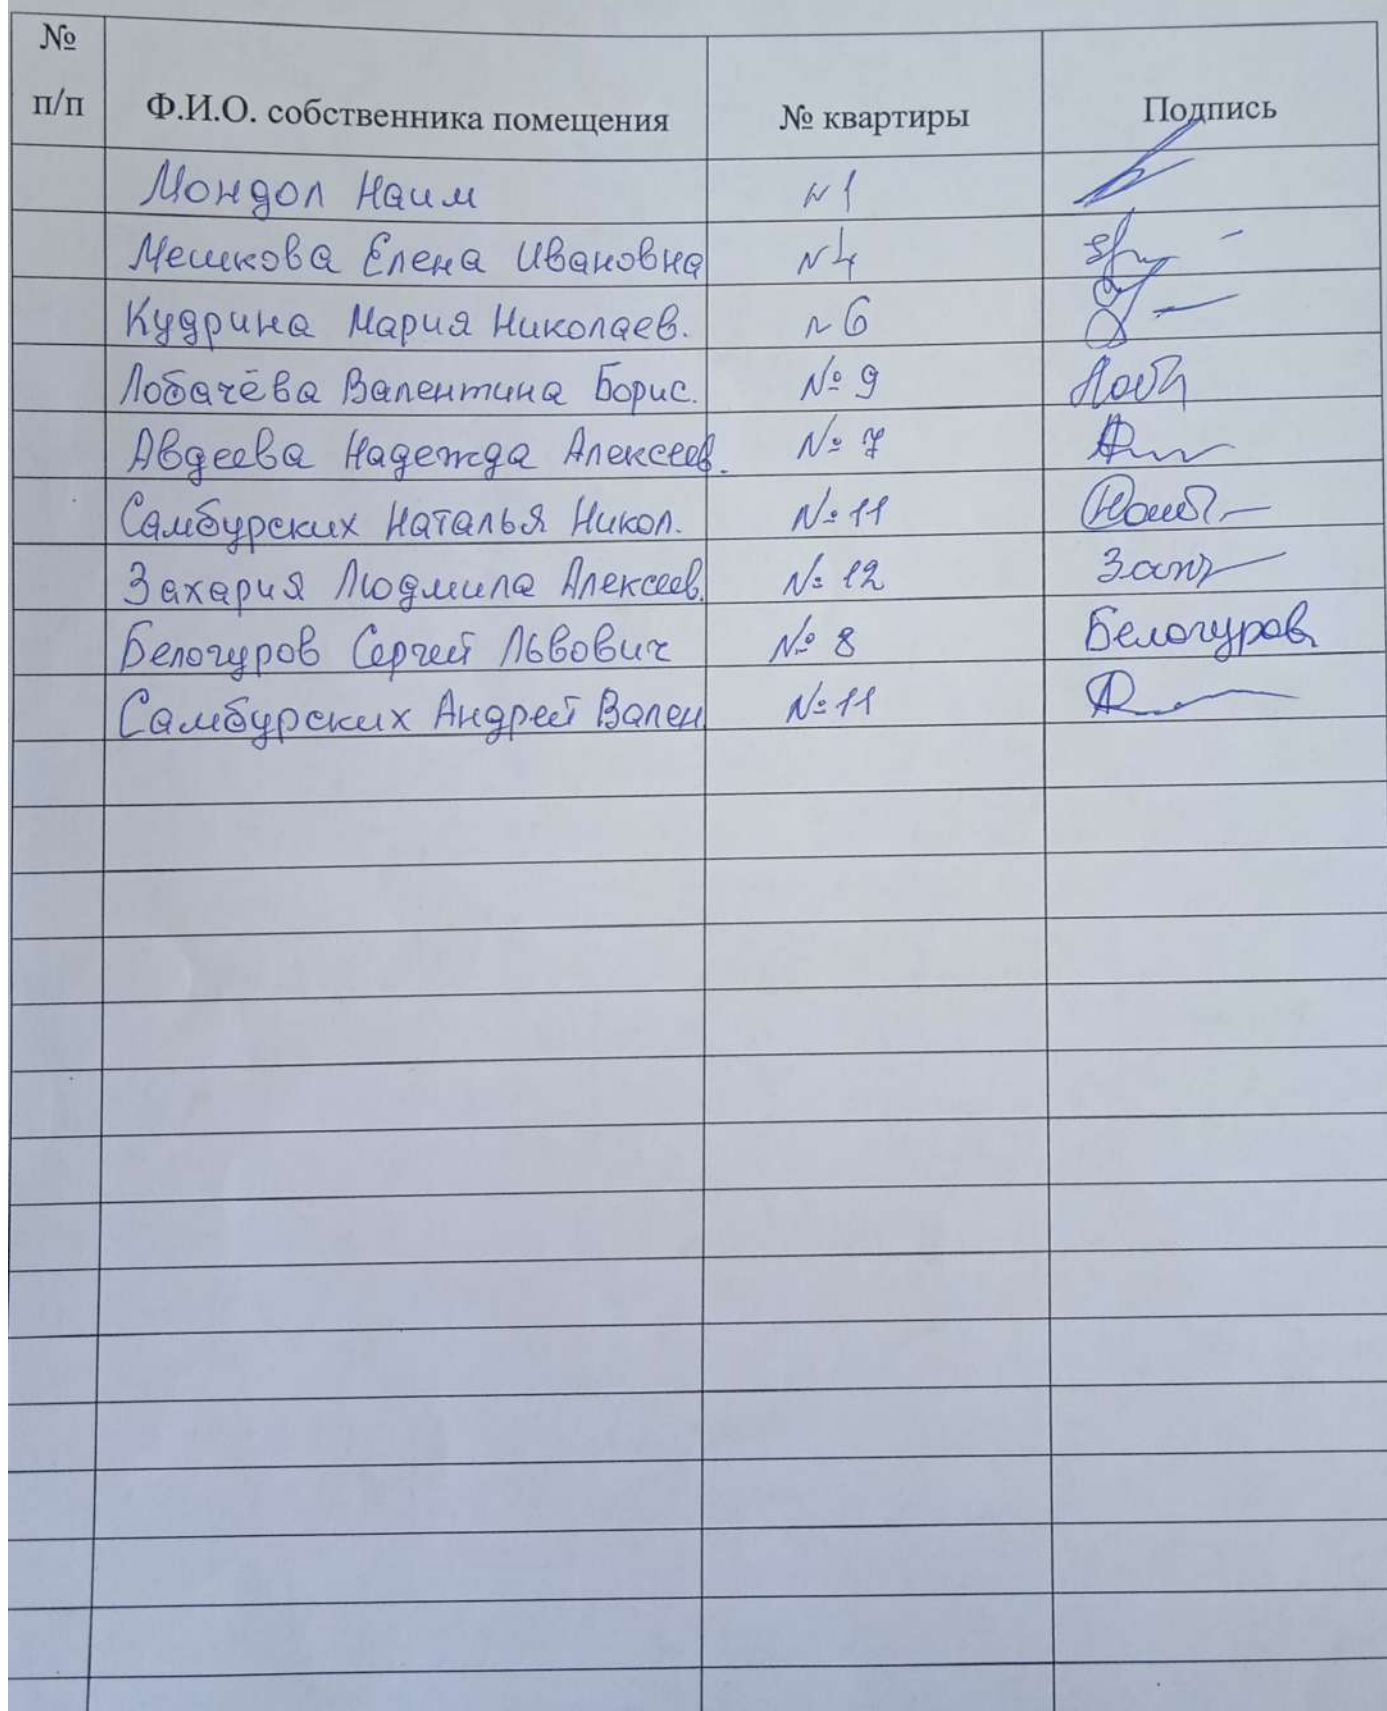 № п/п Ф.И.О. собственника помещения № квартиры Подпись
Мондол Наим № 1
Мешкова Елена Ивановна № 4
Кудрина Мария Николаев. № 6
Лобачёва Валентина Борис. № 9
Авдеева Надежда Алексеев. № 7
Самбурских Наталья Никол. № 11
Захария Людмила Алексеев. № 12
Белогуров Сергей Львович № 8 Белогуров
Самбурских Андрей Вален № 11